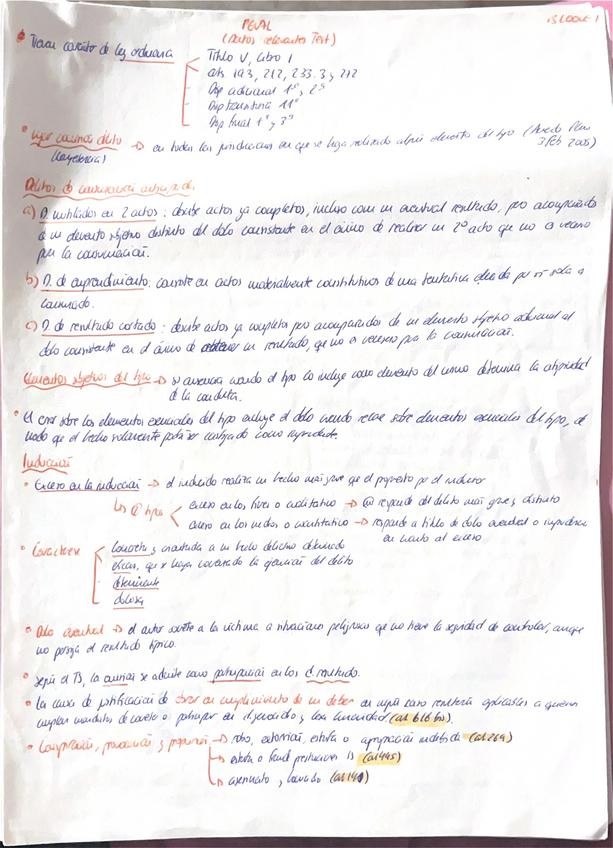 PENAL
(Datos relevantes Test)
BLOQUE 1
• Tienen carácter de ley ordinaria
Título V, Libro I
arts 193, 212, 233.3, 272
Disp adicional 1ª, 2ª
Disp transitoria 11ª
Disp final 1ª, 3ª
• Lugar comisión delito → en todas las jurisdicciones en que se haya realizado algún elemento del tipo (Acuerdo Pleno
3 Feb 2005)
Delitos de consumación anticipada:
a) D. mutilados en 2 actos: describe actos ya completos, incluso con un eventual resultado, pero acompañado
de un elemento subjetivo distinto del dolo consistente en el ánimo de realizar un 2º acto que no es necesario
para la consumación.
b) D. de emprendimiento: consiste en actos materialmente constitutivos de una tentativa elevada por sí sola a
consumado.
c) D. de resultado cortado: describe actos ya completos pero acompañados de un elemento subjetivo adicional al
dolo consistente en el ánimo de obtener un resultado, que no es necesario para la consumación.
Elementos subjetivos del tipo → su ausencia cuando el tipo lo incluye como elemento del mismo determina la atipicidad
de la conducta.
• El error sobre los elementos esenciales del tipo excluye el dolo cuando recae sobre elementos esenciales del tipo, de
modo que el hecho solamente podría ser castigado como imprudente.
Inducción
• Exceso en la inducción → el inducido realiza un hecho más grave que el propuesto por el inductor
↳ @ tipos
exceso en los fines o cualitativo → @ responde del delito más grave y distinto
exceso en los medios o cuantitativo → responde a título de dolo eventual o imprudencia
en cuanto al exceso
• Caracteres
concreta, y orientada a un hecho delictivo determinado
eficaz, que haya causado la ejecución del delito
determinante
dolosa
• Dolo eventual → el autor somete a la víctima a situaciones peligrosas que no tiene la seguridad de controlar, aunque
no persiga el resultado típico.
• Según el TS, la omisión se admite como participación en los d. resultado.
• La causa de justificación de obrar en cumplimiento de un deber en ningún caso resultará aplicable a quienes
cumplan mandatos de cometer o participar en genocidio, y lesa humanidad (art 616 bis).
• Conspiración, provocación, y proposición → robo, extorsión, estafa o apropiación indebida (art 269)
→ estafa o fraude prestaciones SS (art 445)
→ asesinato, y homicidio (art 141)